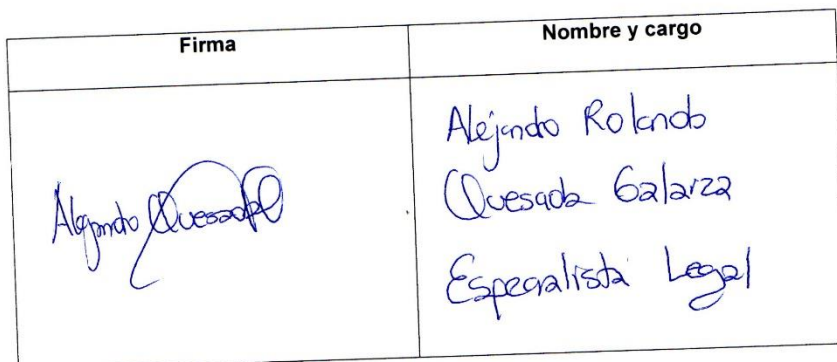 Firma
Nombre y cargo
Alejandro Quesada
Alejandro Rolando
Quesada Galarza
Especialista Legal